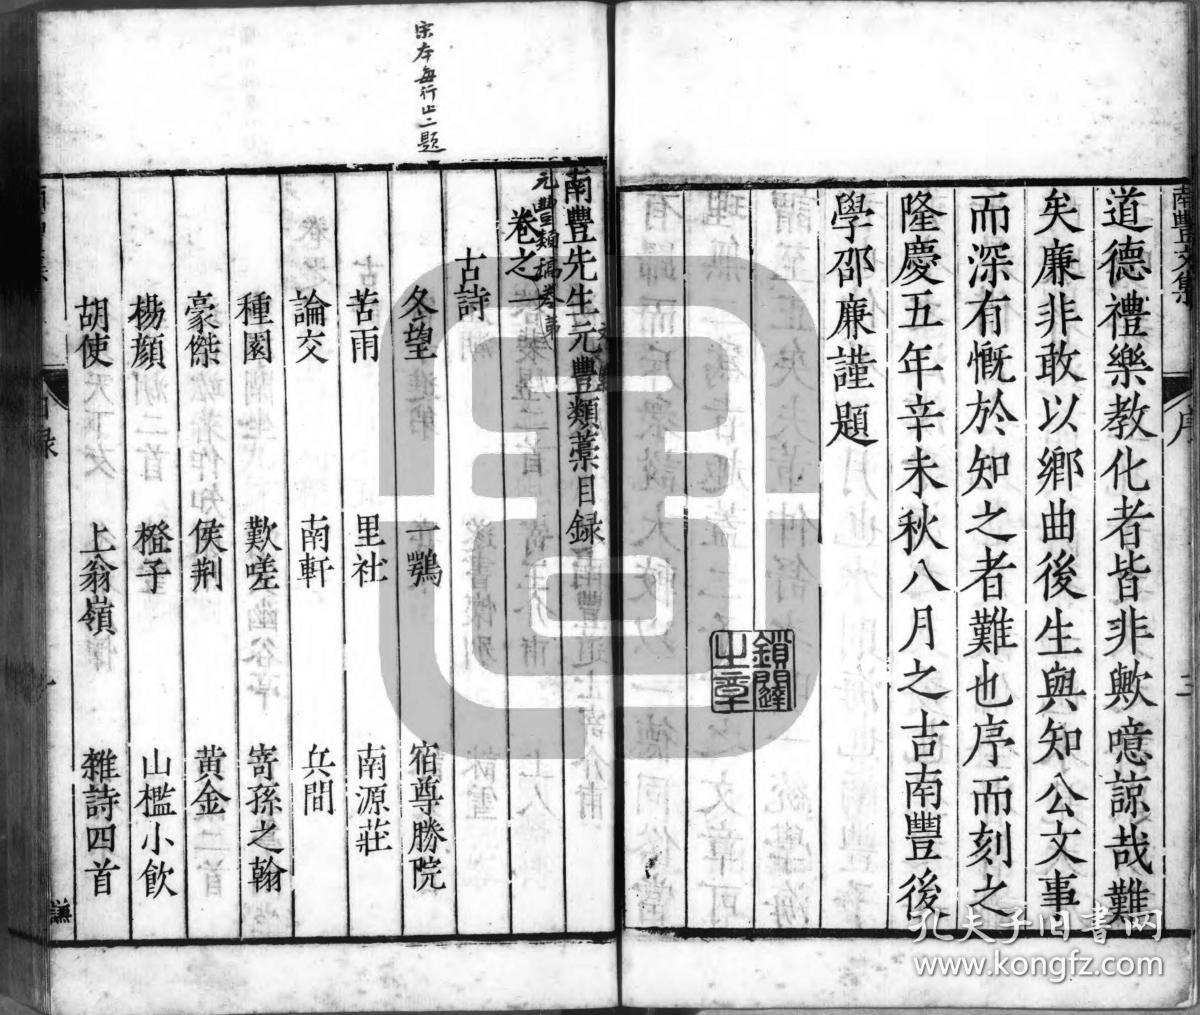 道德禮樂教化者皆非歟噫諒哉難
矣廉非敢以鄉曲後生與知公文事
而深有慨於知之者難也序而刻之
隆慶五年辛未秋八月之吉南豐後
學邵廉謹題
鎖闥之章
南豐文集
序
三
宋本每行止二題
南豐先生元豐類藁目録
元豐類稿卷第
卷之一
古詩
冬望 一鶚 宿尊勝院
苦雨 里社 南源莊
論交 南軒 兵間
種園 歎嗟 寄孫之翰
豪傑 侯荆 黄金
楊顔 橙子 山檻小飲
胡使 上翁嶺 雜詩四首
謙
孔夫子旧书网
www.kongfz.com